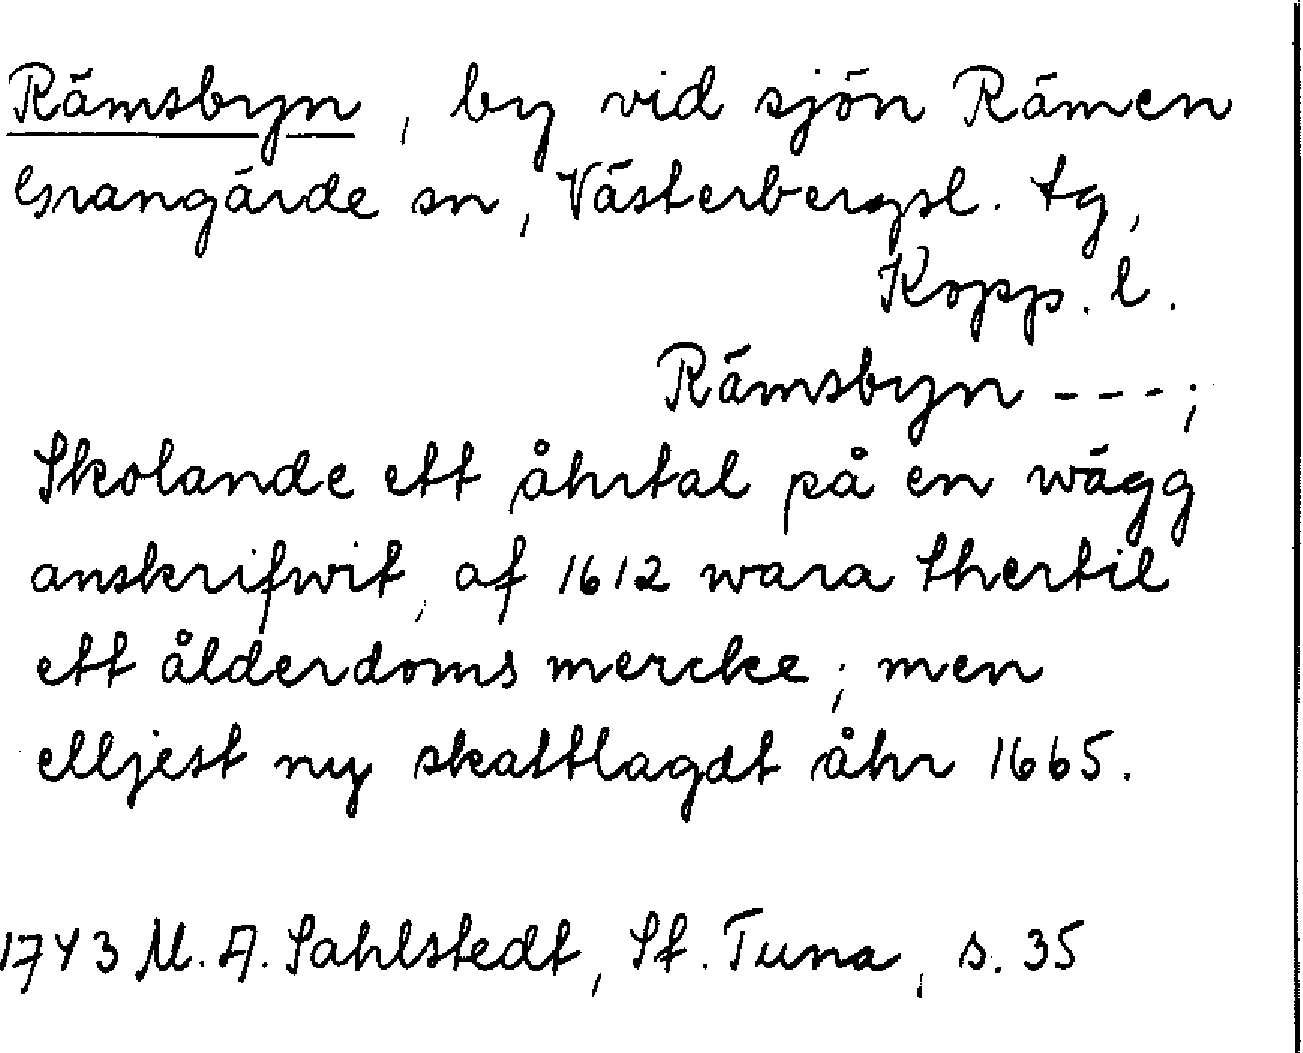 Rämsbyn, by vid sjön Rämen
Grangärde sn, Västerbergsl. tg,
Kopp. l.
Rämsbyn ---;
Skolande ett åhrtal på en wägg
anskrifwit, af 1612 wara thertil
ett ålderdoms mercke; men
elljest ny skattlagdt åhr 1665.
1743 M. A. Sahlstedt, St. Tuna, s. 35